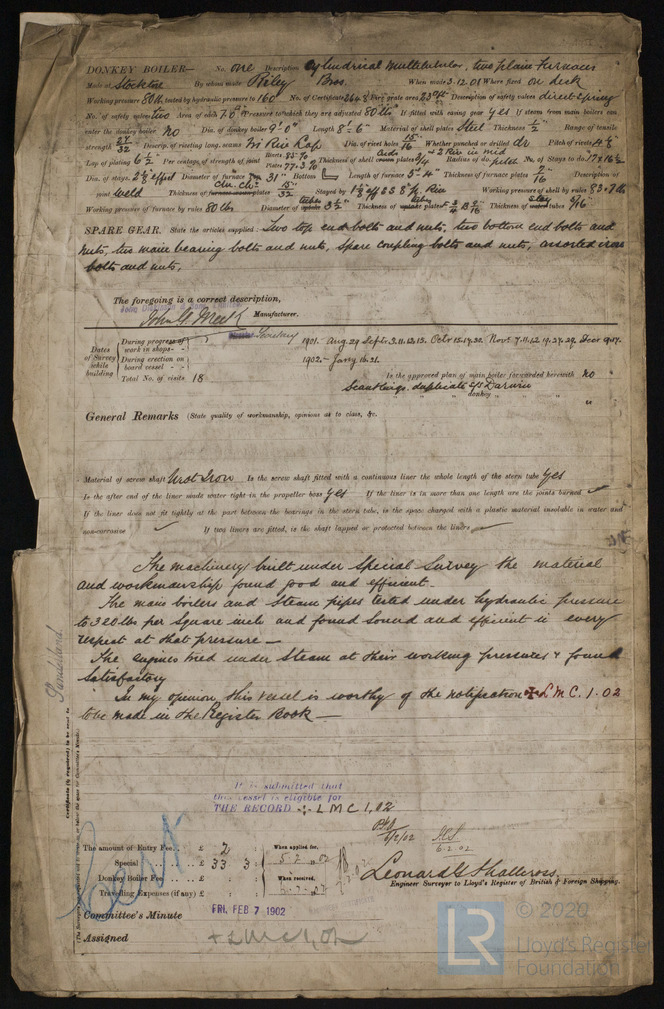 DONKEY BOILER— No. One Description Cylindrical Multitubular, two plain Furnaces
Made at Stockton By whom made Riley Bros. When made 3.12.01 Where fixed on deck
Working pressure 80 lb tested by hydraulic pressure to 160 No. of Certificate 2648 Fire grate area 23 Description of safety valves direct spring
No. of safety valves two Area of each 7.0 Pressure to which they are adjusted 80 lbs If fitted with easing gear yes If steam from main boilers can
enter the donkey boiler no Dia. of donkey boiler 9'.0" Length 8'.6" Material of shell plates Steel Thickness 1/2 Range of tensile
strength 27/32 Descrip. of riveting long. seams Tri Riv Lap Dia. of rivet holes 15/16 Whether punched or drilled dr Pitch of rivets 4 1/8
Lap of plating 6 1/2 Per centage of strength of joint Rivets Plates 77.3 % Thickness of plates 3/4 Radius of do. No. of Stays to do.
Dia. of stays Diameter of furnace 31" Bottom Length of furnace 5'-4" Thickness of furnace plates 7/16 Description of
joint Weld Thickness of plates 15/32 Stayed by Working pressure of shell by rules
Working pressure of furnace by rules 80 lbs Diameter of tubes 3 1/2" Thickness of plates Thickness of tubes 5/16"
SPARE GEAR. State the articles supplied:— Two top end bolts and nuts, two bottom end bolts and
nuts, two main bearing bolts and nuts, spare coupling bolts and nuts, assorted iron
bolts and nuts.
The foregoing is a correct description,
John G. Meek Manufacturer.
Secretary
Dates of Survey while building
During progress of work in shops - - 1901 - Aug. 29 Sept. 3.11.12.13. Octr 15.17.30. Novr 7.11.12.19.27.29. Decr 9.17.
During erection on board vessel - - 1902 - Jany 16.31.
Total No. of visits 18
Is the approved plan of main boiler forwarded herewith no
Scantlings duplicate S/S Darwin
" " " donkey " " "
General Remarks (State quality of workmanship, opinions as to class, &c.
Material of screw shaft Wrot Iron Is the screw shaft fitted with a continuous liner the whole length of the stern tube yes
Is the after end of the liner made water tight in the propeller boss yes If the liner is in more than one length are the joints burned
If the liner does not fit tightly at the part between the bearings in the stern tube, is the space charged with a plastic material insoluble in water and
non-corrosive If two liners are fitted, is the shaft lapped or protected between the liners
The machinery built under Special Survey the material
and workmanship found good and efficient.
The main boilers and Steam pipes tested under hydraulic pressure
to 320 lbs per Square inch and found sound and efficient in every
respect at that pressure —
The engines tried under Steam at their working pressures & found
Satisfactory
In my opinion this vessel is worthy of the notification ✠ L M C. 1.02
to be made in the Register Book —
Sunderland
Certificate (if required) to be sent to
It is submitted that
this vessel is eligible for
THE RECORD ✠ L M C 1,02
5/2/02
6.2.02
The amount of Entry Fee . . £ 2 : :
When applied for,
5.2.02
Special . . . . . £ 33 : 3 :
Donkey Boiler Fee . . . £ : :
When received,
Travelling Expenses (if any) £ : :
Leonard G Shallcross.
Engineer Surveyor to Lloyd's Register of British & Foreign Shipping.
Committee's Minute
FRI. FEB 7 1902
Assigned + L M C 1,02
LR
© 2020
Lloyd's Register
Foundation